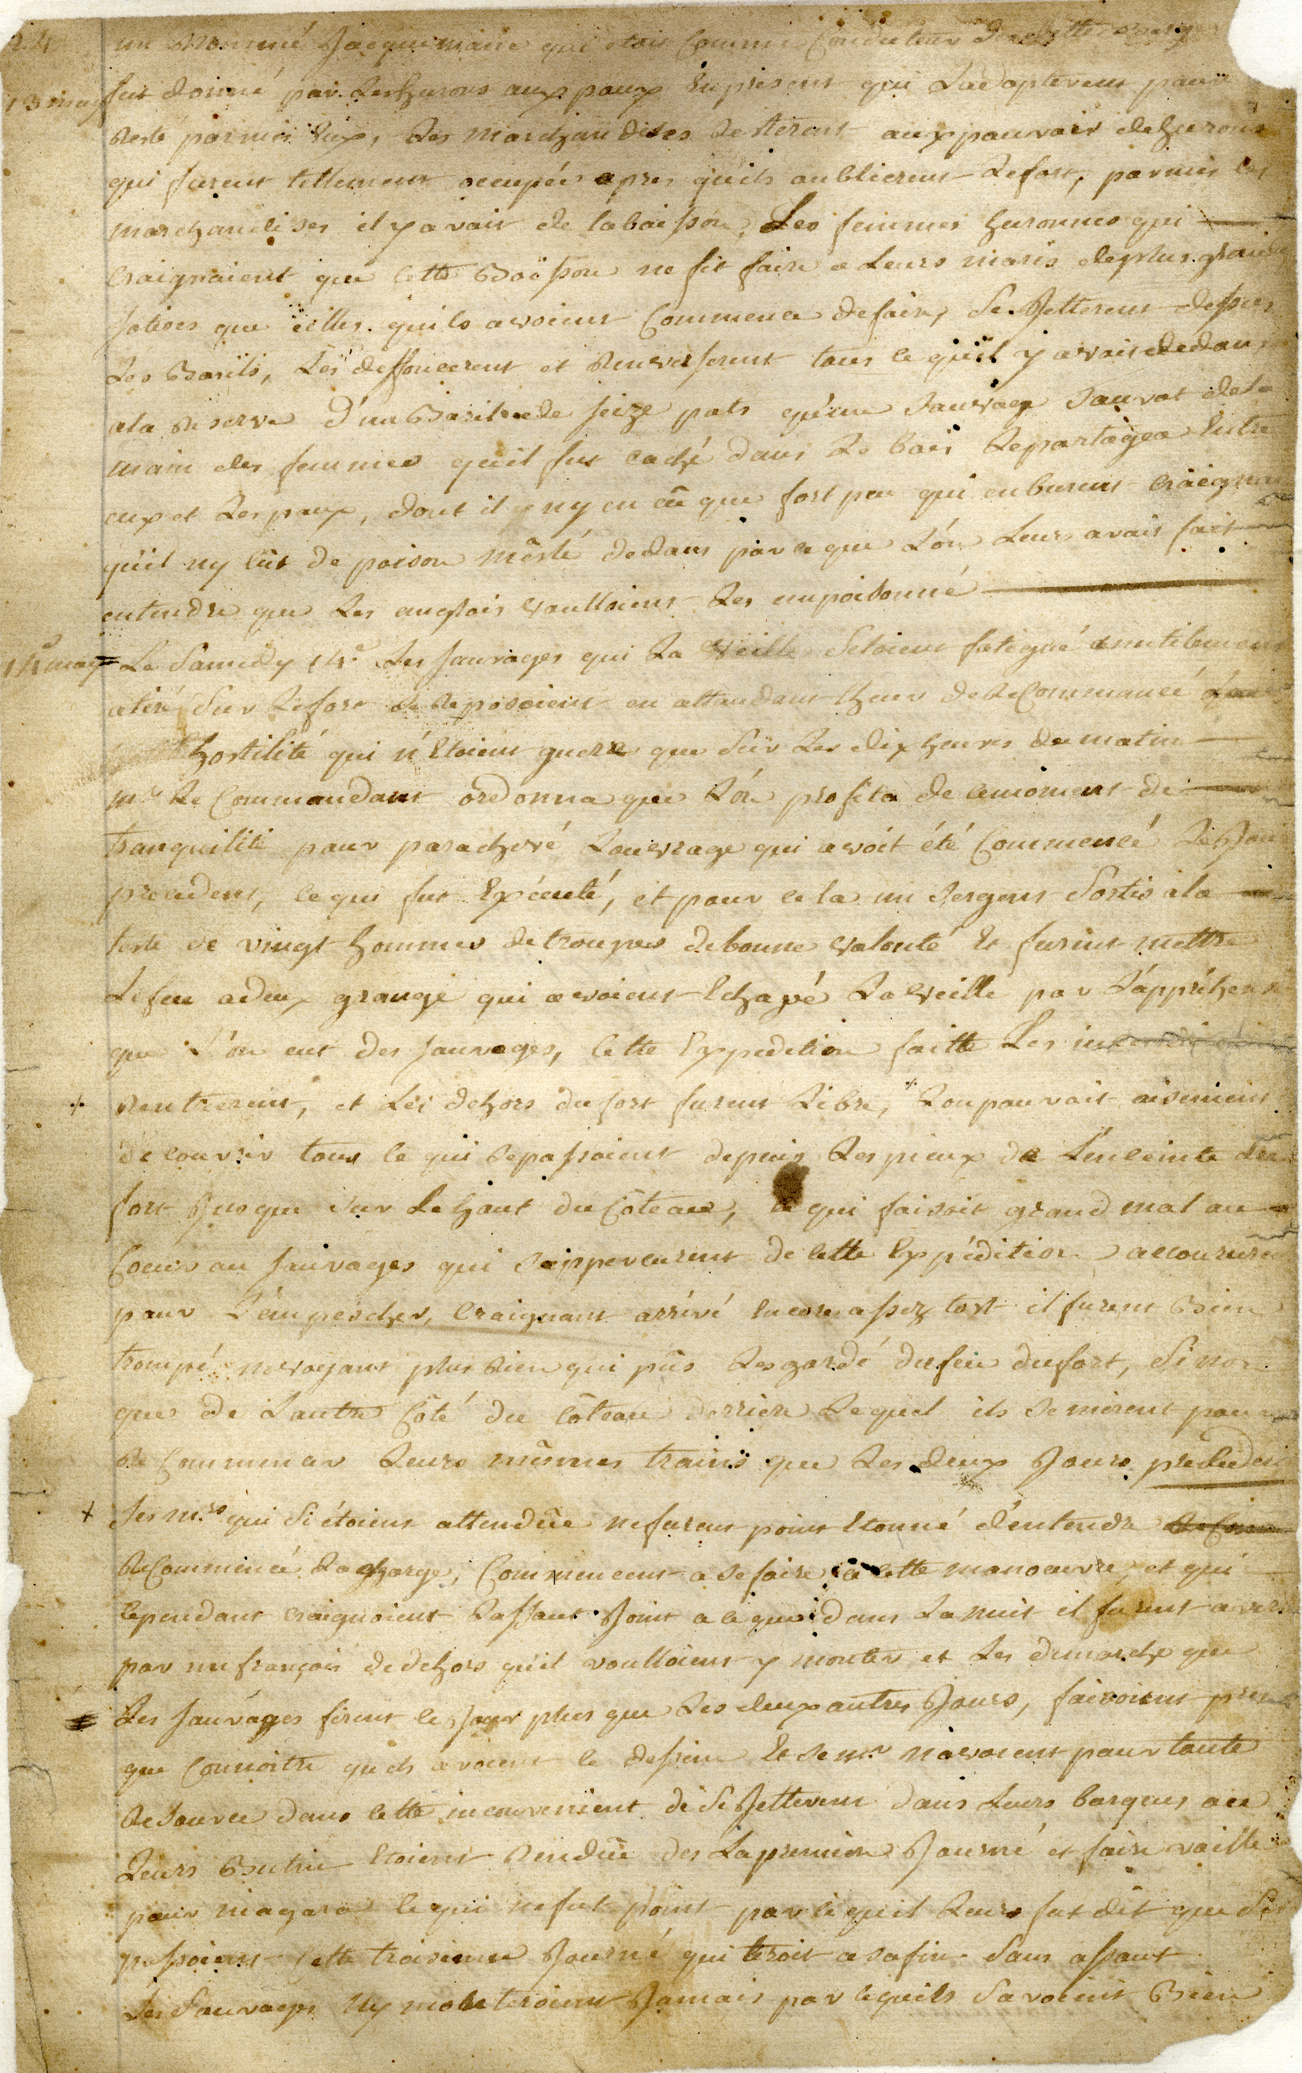 un Nommé Jacquemaire qui etoit Comme Conducteur de cette
13 may fut donné par Les hurons aux poux En présent qui L'adopterent pour
Resté parmis Eux, Les marchandises Resterent aux pouvair de hurons
qui furent tellement occupée apres qu'ils oublierent Lefort, parmis les
marchandises il y avait de laboisson, Les femmes huronnes qui
Craignaient que Cette Boisson ne fit faire a Leurs maris de plus grande
sotises que celles quils avoient Commencé defaire, Se Jetterent dessus
Les Barils, Les deffoncerent et Renverserent tous ce qu'il y avait dedans
ala Reserve D'un Baril de seize pots qu'un Sauvage Sauvat dela
main des femmes qu'il fut caché dans Le bois Le partagea Entre
eux et Les poux, dont il ny en eû que fort peu qui en burent Craignant
qu'il ny eût de poison meslé dedans par ce que L'on Leurs avait fait
entendre que Les anglois voulloient Les empoisonné
14e may Le Samedy 14e Les sauvages qui La Veille Setoient fatigué inutilement
atiré Sur Le fort Se Reposoient en attendant lheur de ReCommencé
hostilité qui n'Etoient guere que Sur Les dix heures du matin
mr Le Commandant ordonna que L'on profita de ce moment de
tranquilité pour parachevé Louvrage qui avoit été Commencé Le Jour
précedent, ce qui fut Exécuté, et pour cela un Sergent Sortis ala
teste de vingt hommes de troupes de bonne volonté Et furent mettre
Le feu a deux grange qui avoient Echapé La veille par L'appréhension
que L'on eut des sauvages, Cette Expedition faitte Les
Rentrerent, et Les dehors du fort furent Libre, Lon pouvait aisement
découvrir tous ce qui Se passoient depuis Les pieux de L'enceinte du
fort Jusque sur Le haut du Côteau, ce qui faisoit grand mal au
Coeur au sauvages qui S'apperçurent de Cette Expédition accoururent
pour L'empescher, Craignant arrivé Encore assez tost il furent Bien
trompé ne voyant plus Rien qui pûs Les gardé du feu du fort, Sinon
que de Lautre Côté du Côteau derriere Lequel ils Se mirent pour
ReCommencer Leurs mêmes trains que Les deux Jours precedent
Ses mrs qui Si étoient attendûe ne furent point Etonné d'entendre
ReCommencé La Charge, Commencent a Se faire a Cette manoeuvre, et qui
Cependant Craignoient Lassaut Joint a ce que dans La nuit il furent averti
par un françois de dehors qu'il voulloient y monter et Les demarche que
Les sauvages firent ce Jour plus que Les deux autres Jours, faisoient pres
que Connoitre quils avoient ce dessein Et Se mrs n'avoient pour toute
Resource dans Cette inconvenient de Se Jetterent dans Leurs barques ou
Leurs Butin Etoient Rendûe des La premiere Journé et faire voille
pour niagara ce qui ne fut point par ce qu'il Leurs fut dit que Si
passoient Cette troisieme Journé qui tiroit a sa fin Sans assaut
Les Sauvages Ny monteroient Jamais par ce quils Savoient Bien